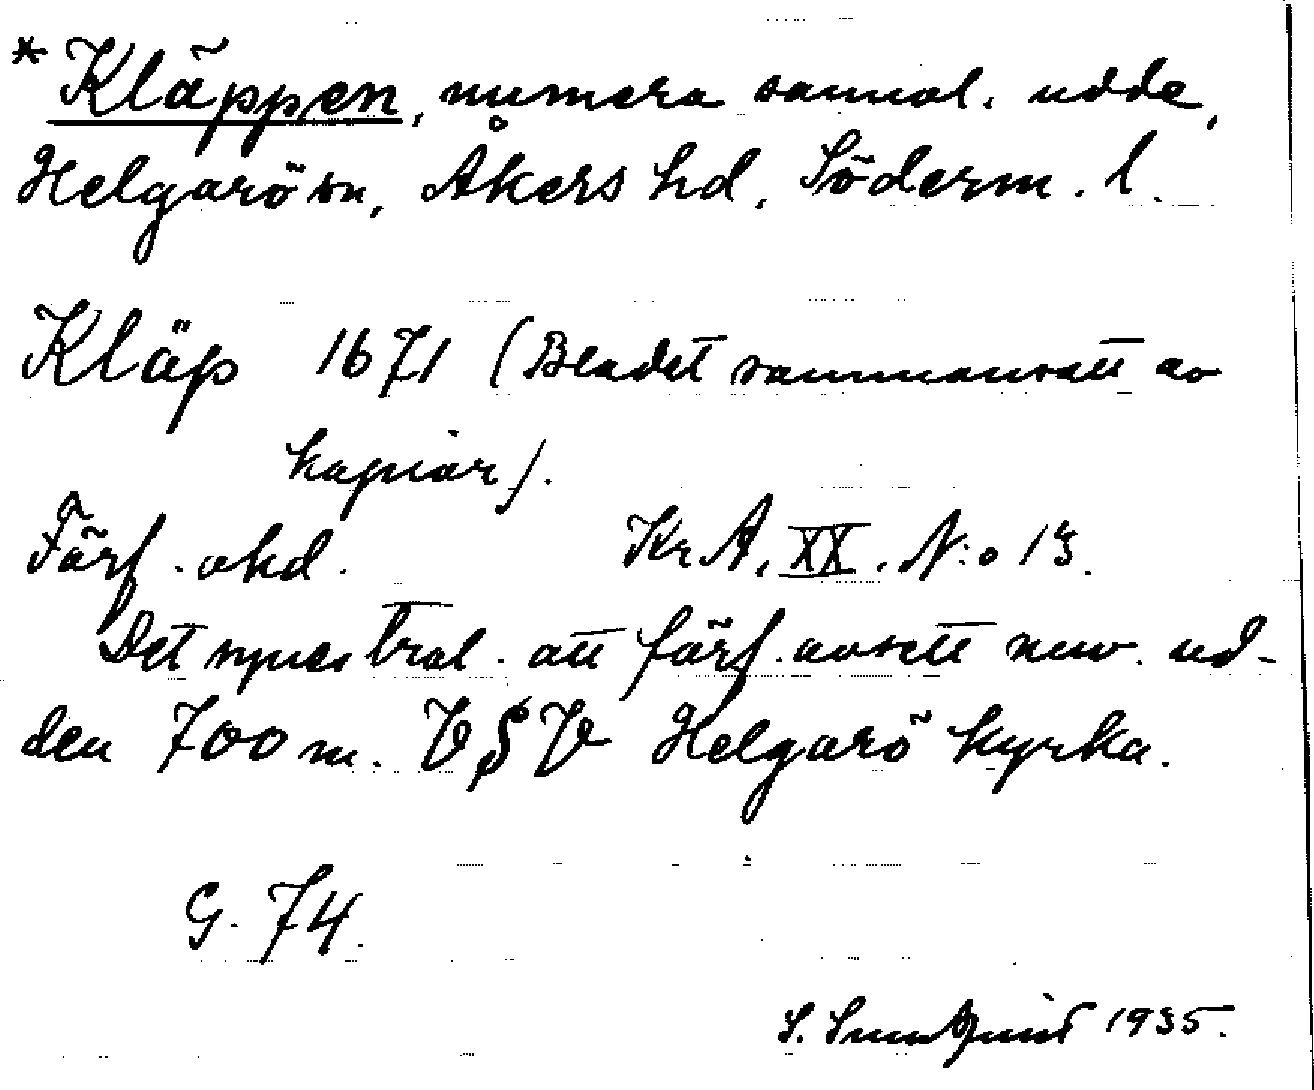 * Kläppen, numera sannol. udde,
Helgarö sn, Åkers hd, Söderm. l.
Kläp 1671 (Bladet sammansatt av
kopior).
Förf. okd. KrA, XX. N:o 13.
Det synes trol. att förf. avsett nuv. ud-
den 700 m. VSV Helgarö kyrka.
G. 74.
S. Sundquist 1935.